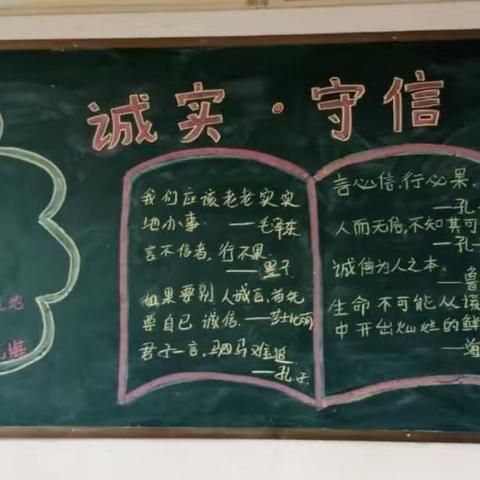 诚实·守信
我们应该老老实实
地办事 ——毛泽东
言不信者,行不果。
——墨子
如果要别人诚信,首先
要自己诚信.——莎士比亚
君子一言,驷马难追
——孔子
言必信,行必果.
——孔
人而无信,不知其可
——孔
诚信为人之本.
——鲁
生命不可能从谎
中开出灿烂的鲜
——海